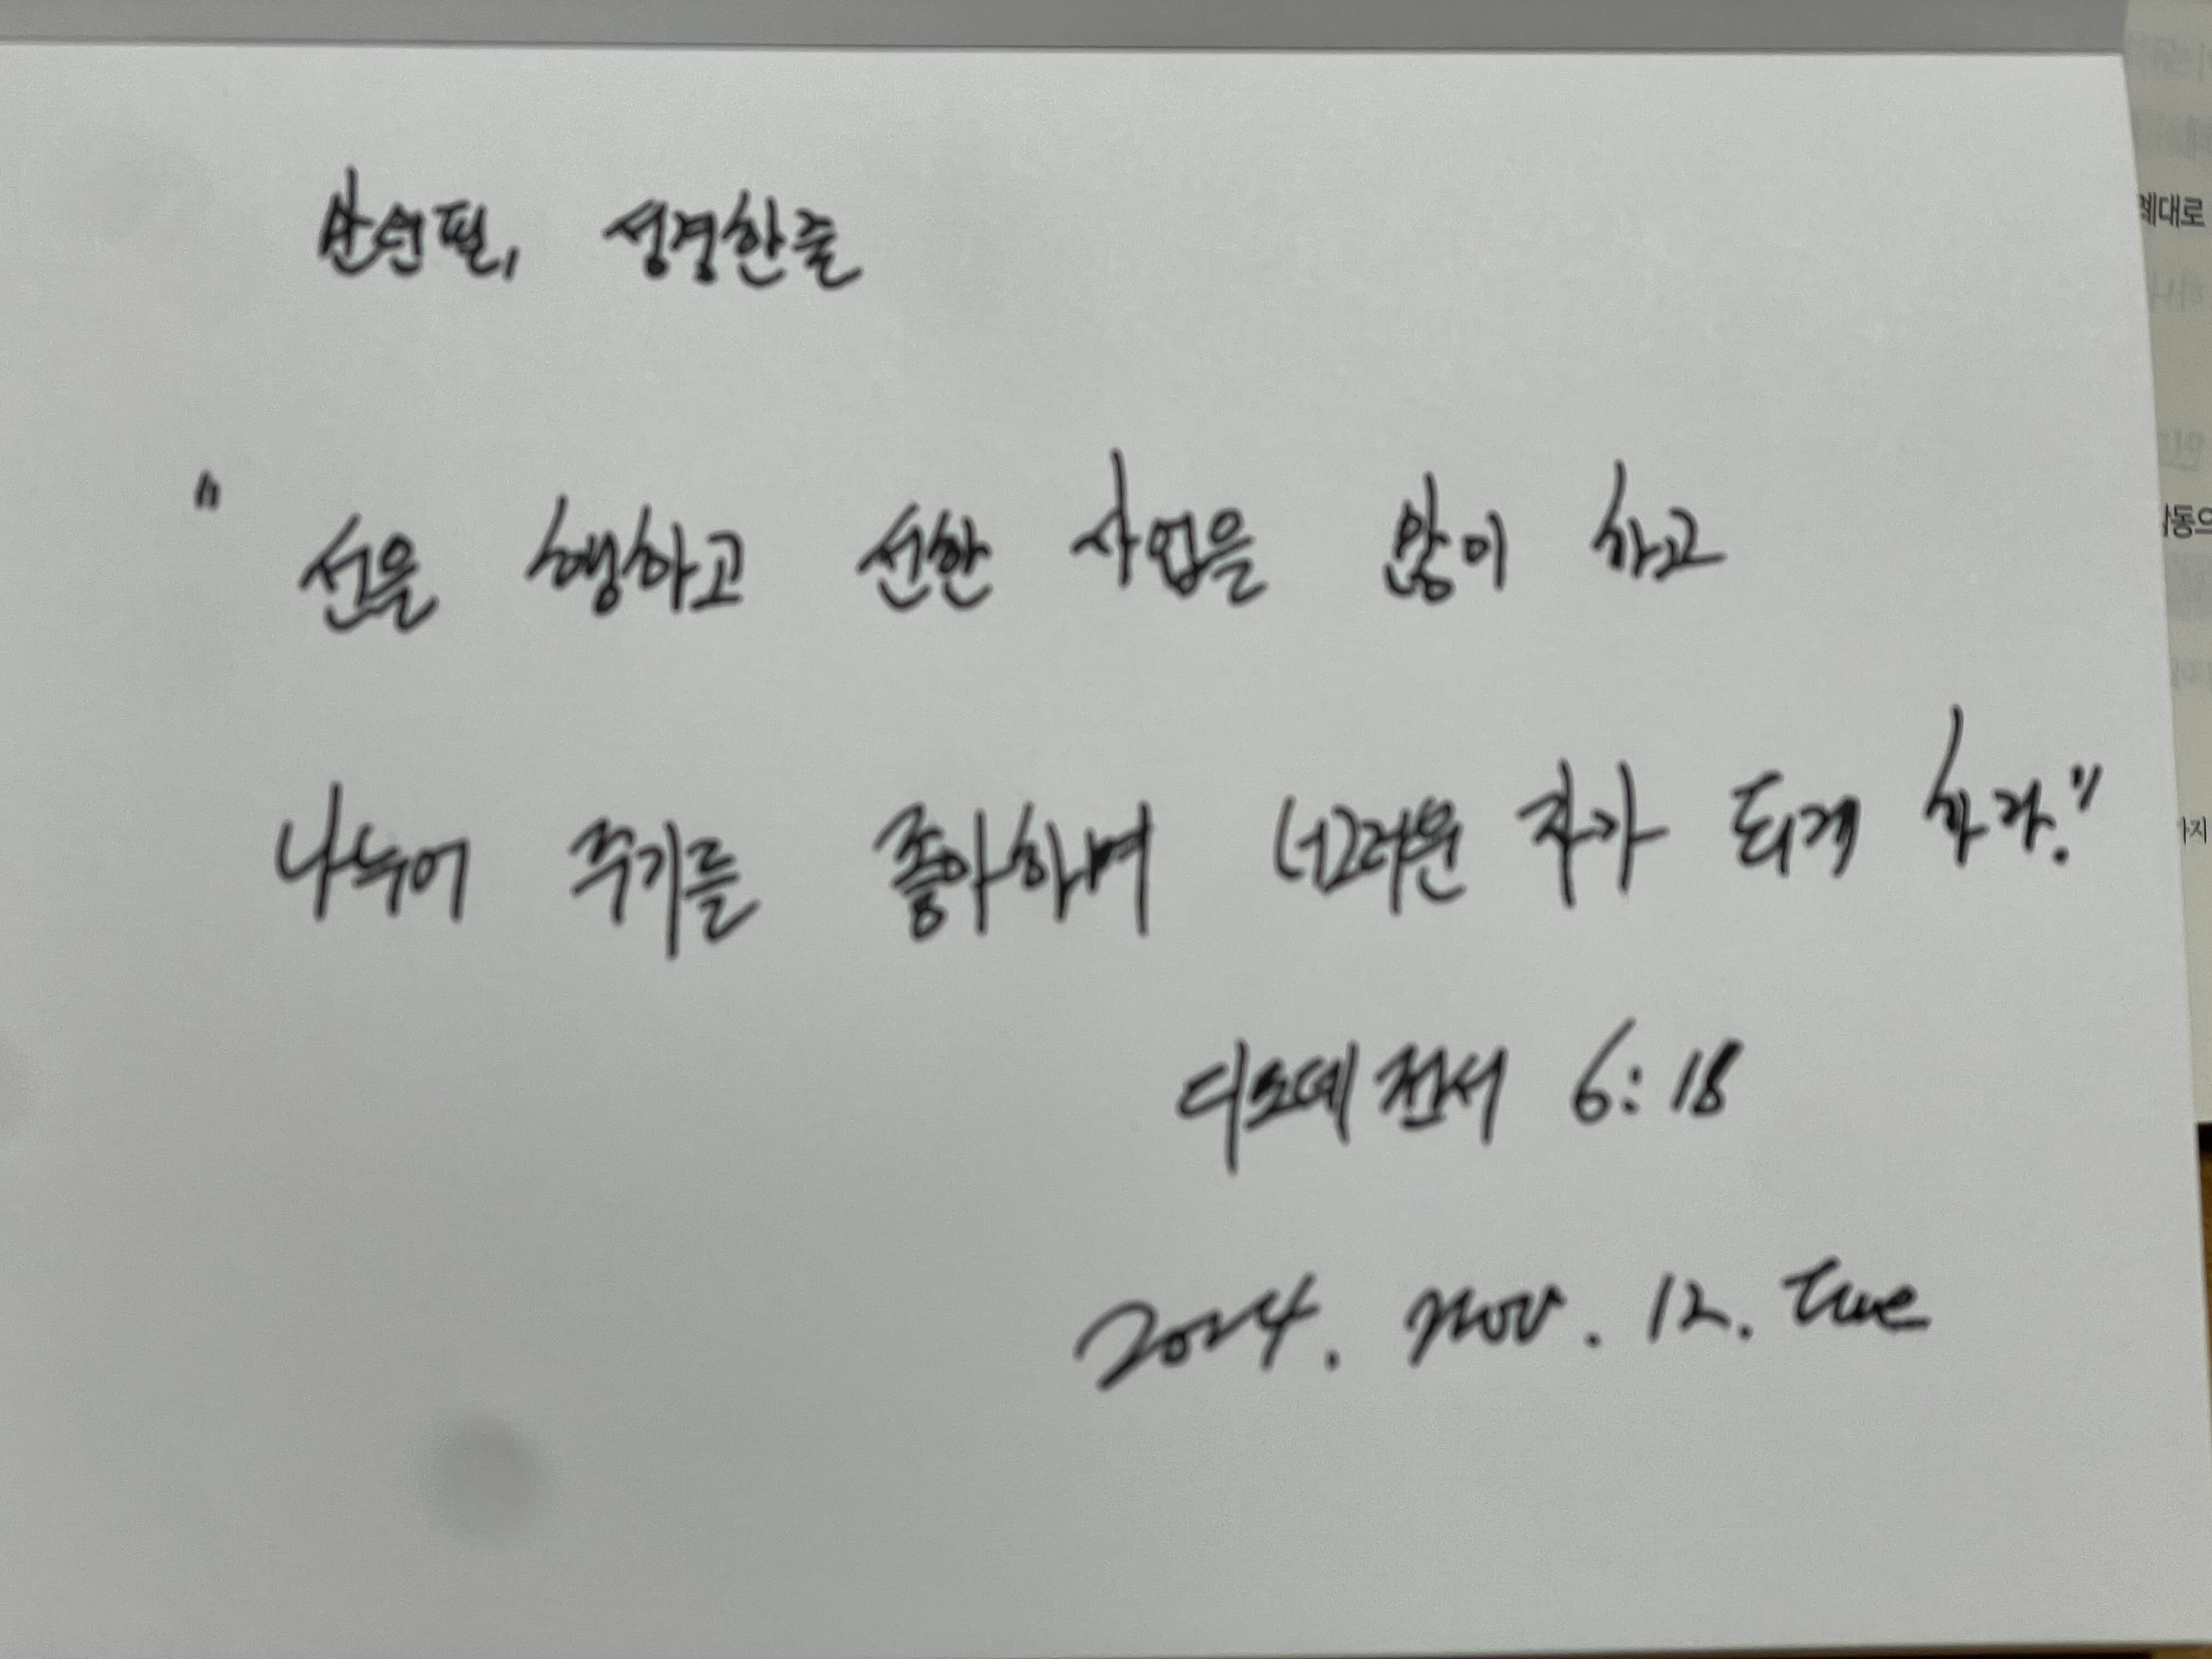 만년필, 성경한줄
"선을 행하고 선한 사업을 많이 하고
나누어 주기를 좋아하며 너그러운 자가 되게 하라."
디모데전서 6:18
2024. Nov. 12. Tue
례대로
가지